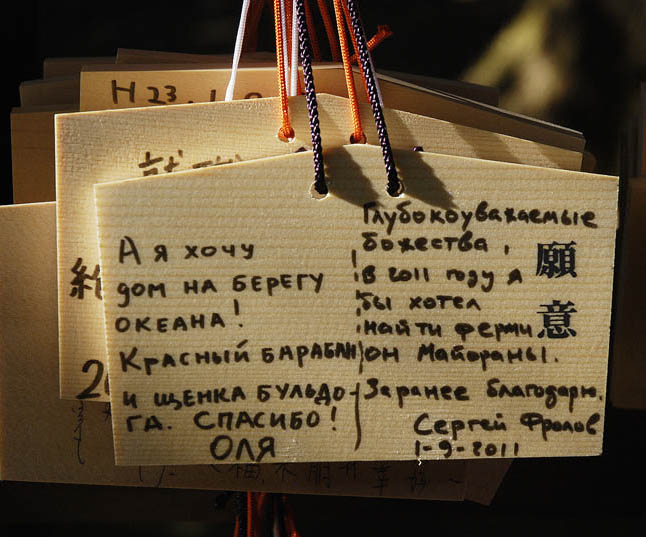 H 23.
А я хочу
дом на берегу
океана!
Красный барабан
и щенка бульдо-
га. Спасибо!
Оля
Глубокоуважаемые
божества,
в 2011 году я
бы хотел
найти ферми
он Майораны.
Заранее благодарю.
Сергей Фролов
1-9-2011
願意